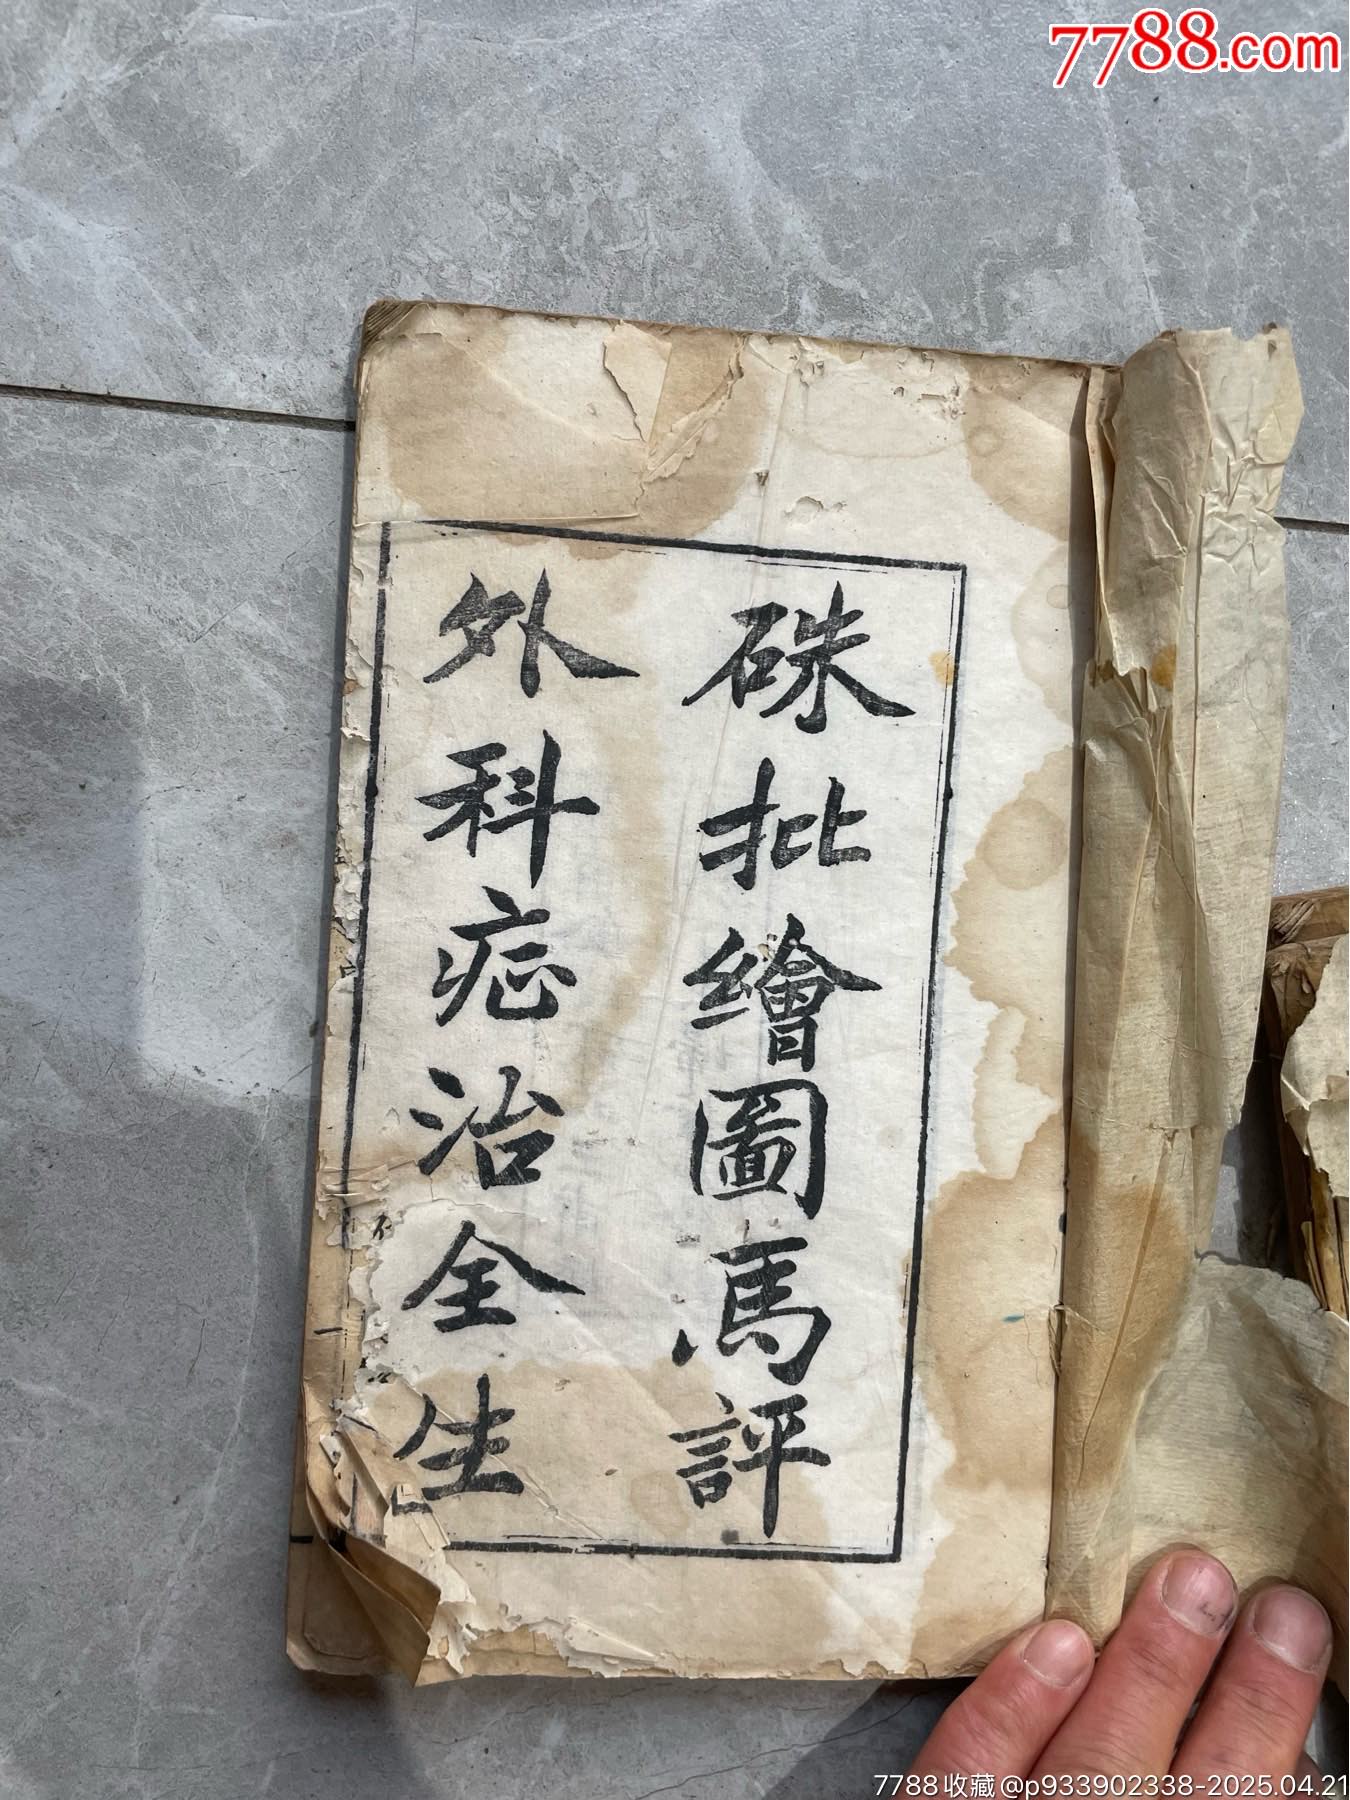 7788.com
硃批繪圖馬評
外科症治全生
7788收藏@p933902338-2025.04.21